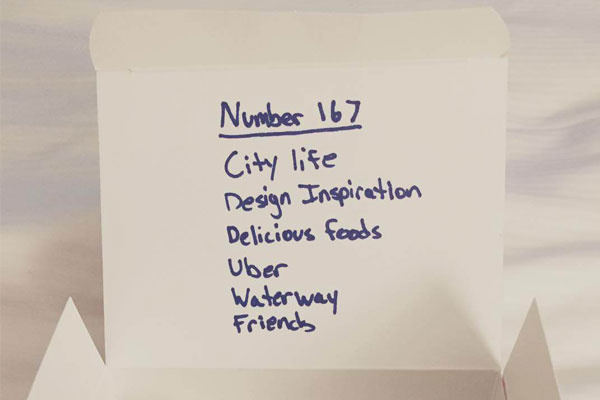 Number 167
City life
Design Inspiration
Delicious foods
Uber
Waterway
Friends